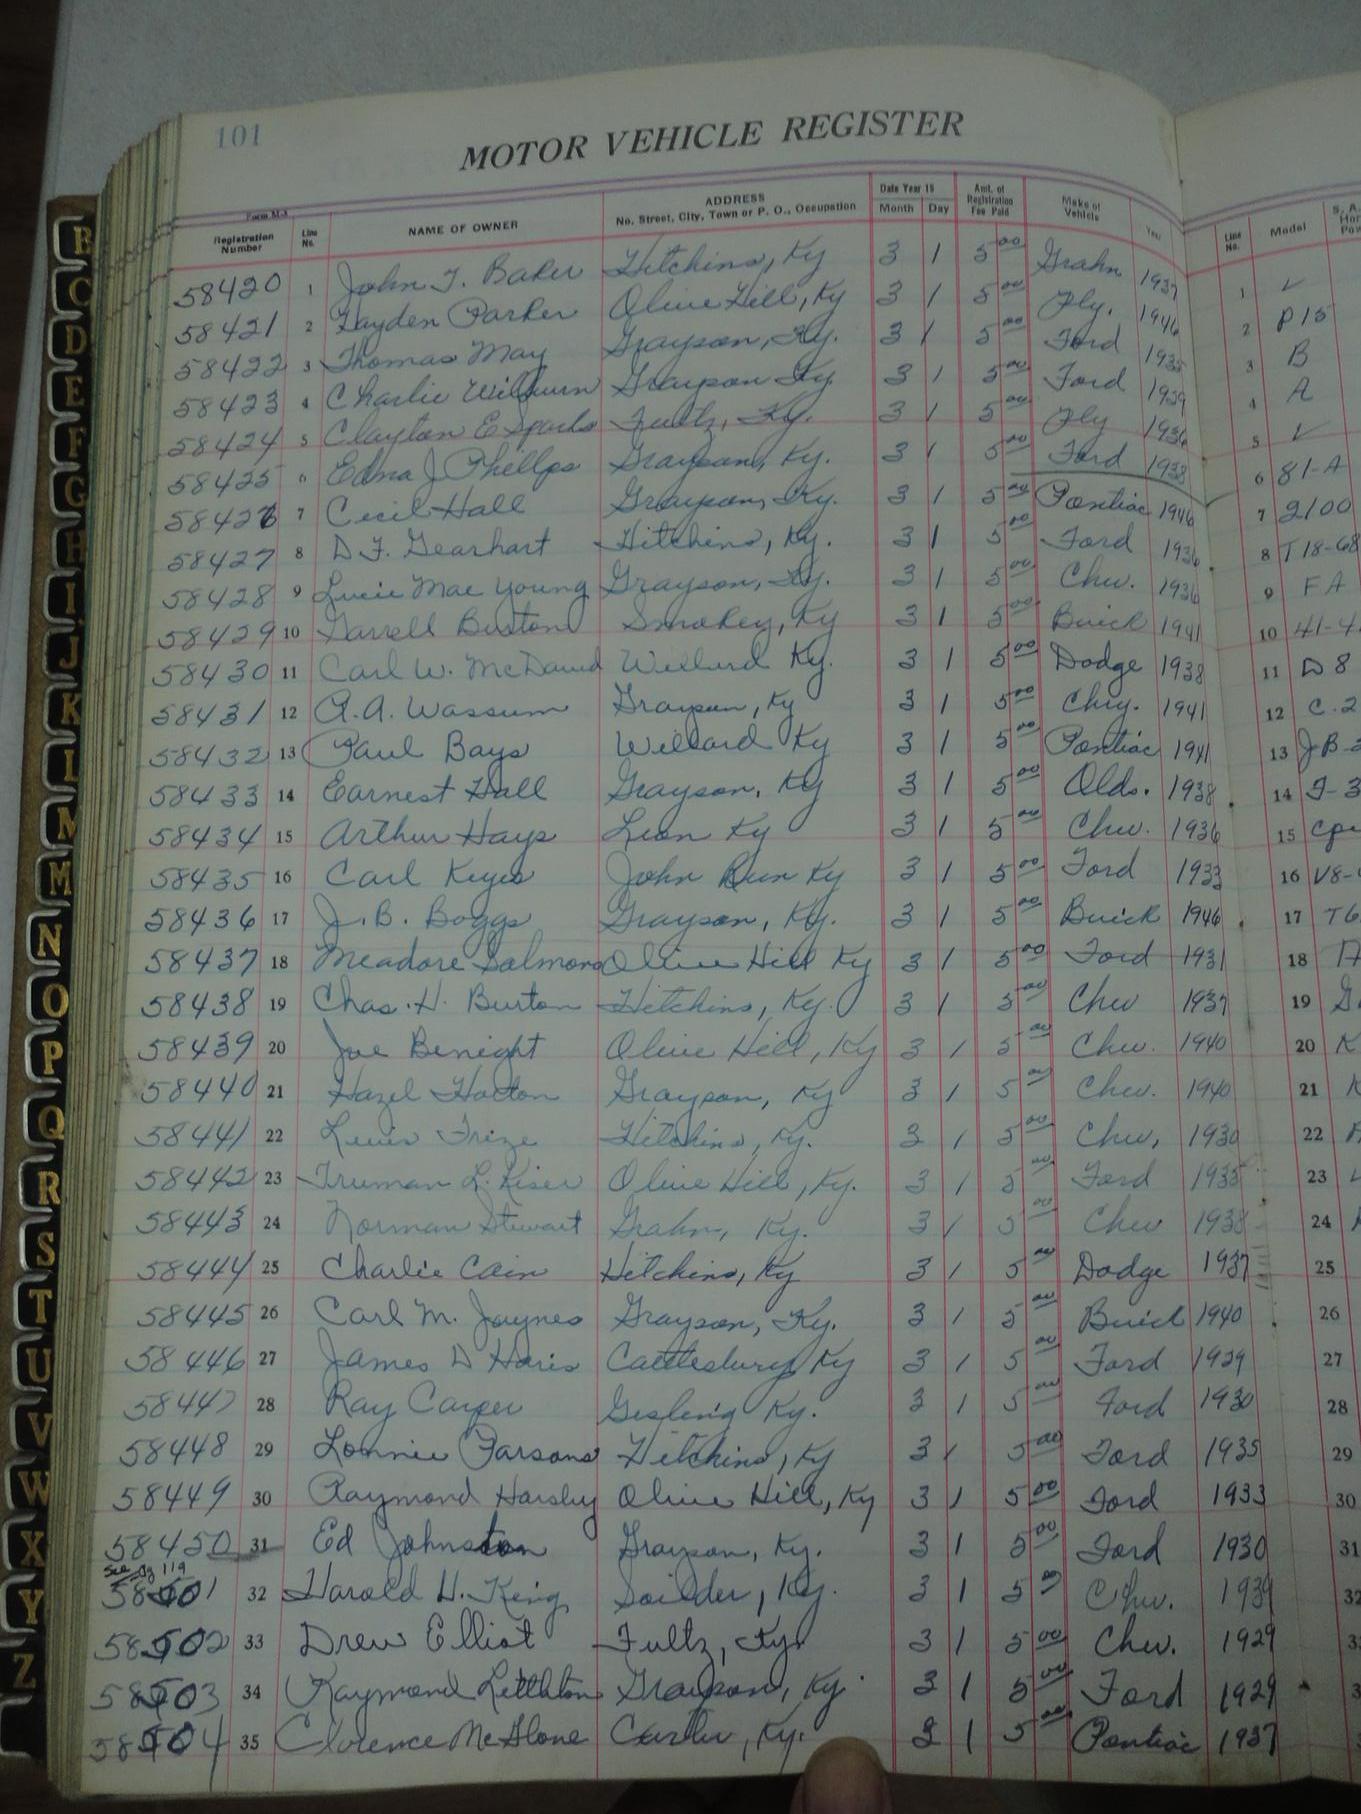 101
MOTOR VEHICLE REGISTER
Form M-3
Registration Number Line No. NAME OF OWNER ADDRESS No. Street, City, Town or P. O., Occupation Date Year 19 Month Day Amt. of Registration Fee Paid Make of Vehicle Year Line No. Model
58420 1 John T. Baker Hitchins, Ky 3 1 5 00 Grahn 1937 1 ✓
58421 2 Hayden Parker Olive Hill, Ky 3 1 5 00 Ply. 1946 2 P15
58422 3 Thomas May Grayson, Ky. 3 1 5 00 Ford 1935 3 B
58423 4 Charlie Wilburn Grayson Ky 3 1 5 00 Ford 1939 4 A
58424 5 Clayton E Sparks Fultz, Ky. 3 1 5 00 Ply 1936 5 ✓
58425 6 Edna J Phillps Grayson, Ky. 3 1 5 00 Ford 1938 6 81-A
58426 7 Cecil Hall Grayson, Ky. 3 1 5 00 Pontiac 1946 7 2100
58427 8 D.F. Gearhart Hitchins, Ky. 3 1 5 00 Ford 1936 8 T18-68
58428 9 Lucie Mae Young Grayson, Ky. 3 1 5 00 Chev. 1936 9 FA
58429 10 Garrell Burton Smokey, Ky 3 1 5 00 Buick 1941 10
58430 11 Carl W. McDavid Willard Ky. 3 1 5 00 Dodge 1938 11 D8
58431 12 A.A. Wassum Grayson, Ky 3 1 5 00 Chry. 1941 12
58432 13 Paul Bays Willard Ky 3 1 5 00 Pontiac 1941 13
58433 14 Earnest Hall Grayson, Ky 3 1 5 00 Olds. 1938 14
58434 15 Arthur Hays Leon Ky 3 1 5 00 Chev. 1936 15
58435 16 Carl Keyes John Run Ky 3 1 5 00 Ford 1933 16
58436 17 J.B. Boggs Grayson, Ky. 3 1 5 00 Buick 1946 17
58437 18 Meadore Salmons Olive Hill Ky 3 1 5 00 Ford 1931 18
58438 19 Chas. H. Burton Hitchins, Ky. 3 1 5 00 Chev 1937 19
58439 20 Joe Benight Olive Hill, Ky 3 1 5 00 Chev. 1940 20
58440 21 Hazel Horton Grayson, Ky 3 1 5 00 Chev. 1940 21
58441 22 Lewis Frize Hitchins, Ky. 3 1 5 00 Chev, 1930 22
58442 23 Truman L. Kiser Olive Hill, Ky. 3 1 5 00 Ford 1935 23
58443 24 Norman Stewart Grahn, Ky. 3 1 5 00 Chev 1938 24
58444 25 Charlie Cain Hitchins, Ky 3 1 5 00 Dodge 1937 25
58445 26 Carl M. Jaynes Grayson, Ky. 3 1 5 00 Buick 1940 26
58446 27 James D Haris Cattlesburg Ky 3 1 5 00 Ford 1929 27
58447 28 Ray Carper Ky. 3 1 5 00 Ford 1930 28
58448 29 Lonnie Parsons Hitchins, Ky 3 1 5 00 Ford 1935 29
58449 30 Raymond Olive Hill, Ky 3 1 5 00 Ford 1933 30
58450 31 Ed Johnston Grayson, Ky. 3 1 5 00 Ford 1930 31
See Pg 119
58501 32 Harold H. King Ky. 3 1 5 00 Chev. 1939 32
58502 33 Drew Elliot Fultz, Ky. 3 1 5 00 Chev. 1929
58503 34 Raymond Littleton Grayson, Ky. 3 1 5 00 Ford 1929
58504 35 Clarence McGlone Carter, Ky. 3 1 5 00 Pontiac 1937
B
C
D
E
F
G
H
I
J
K
L
M
M
N
O
P
Q
R
S
T
U
V
W
X
Y
Z